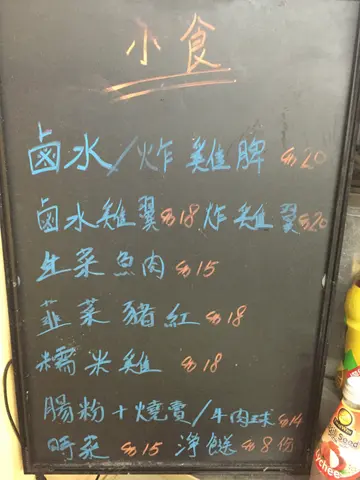 小食
鹵水/炸雞脾 $20
鹵水雞翼$18 炸雞翼$20
生菜魚肉 $15
韮菜豬紅 $18
糯米雞 $18
腸粉+燒賣/牛肉球 $14
時菜 $15 淨餸 $8份
Seed
Lychee